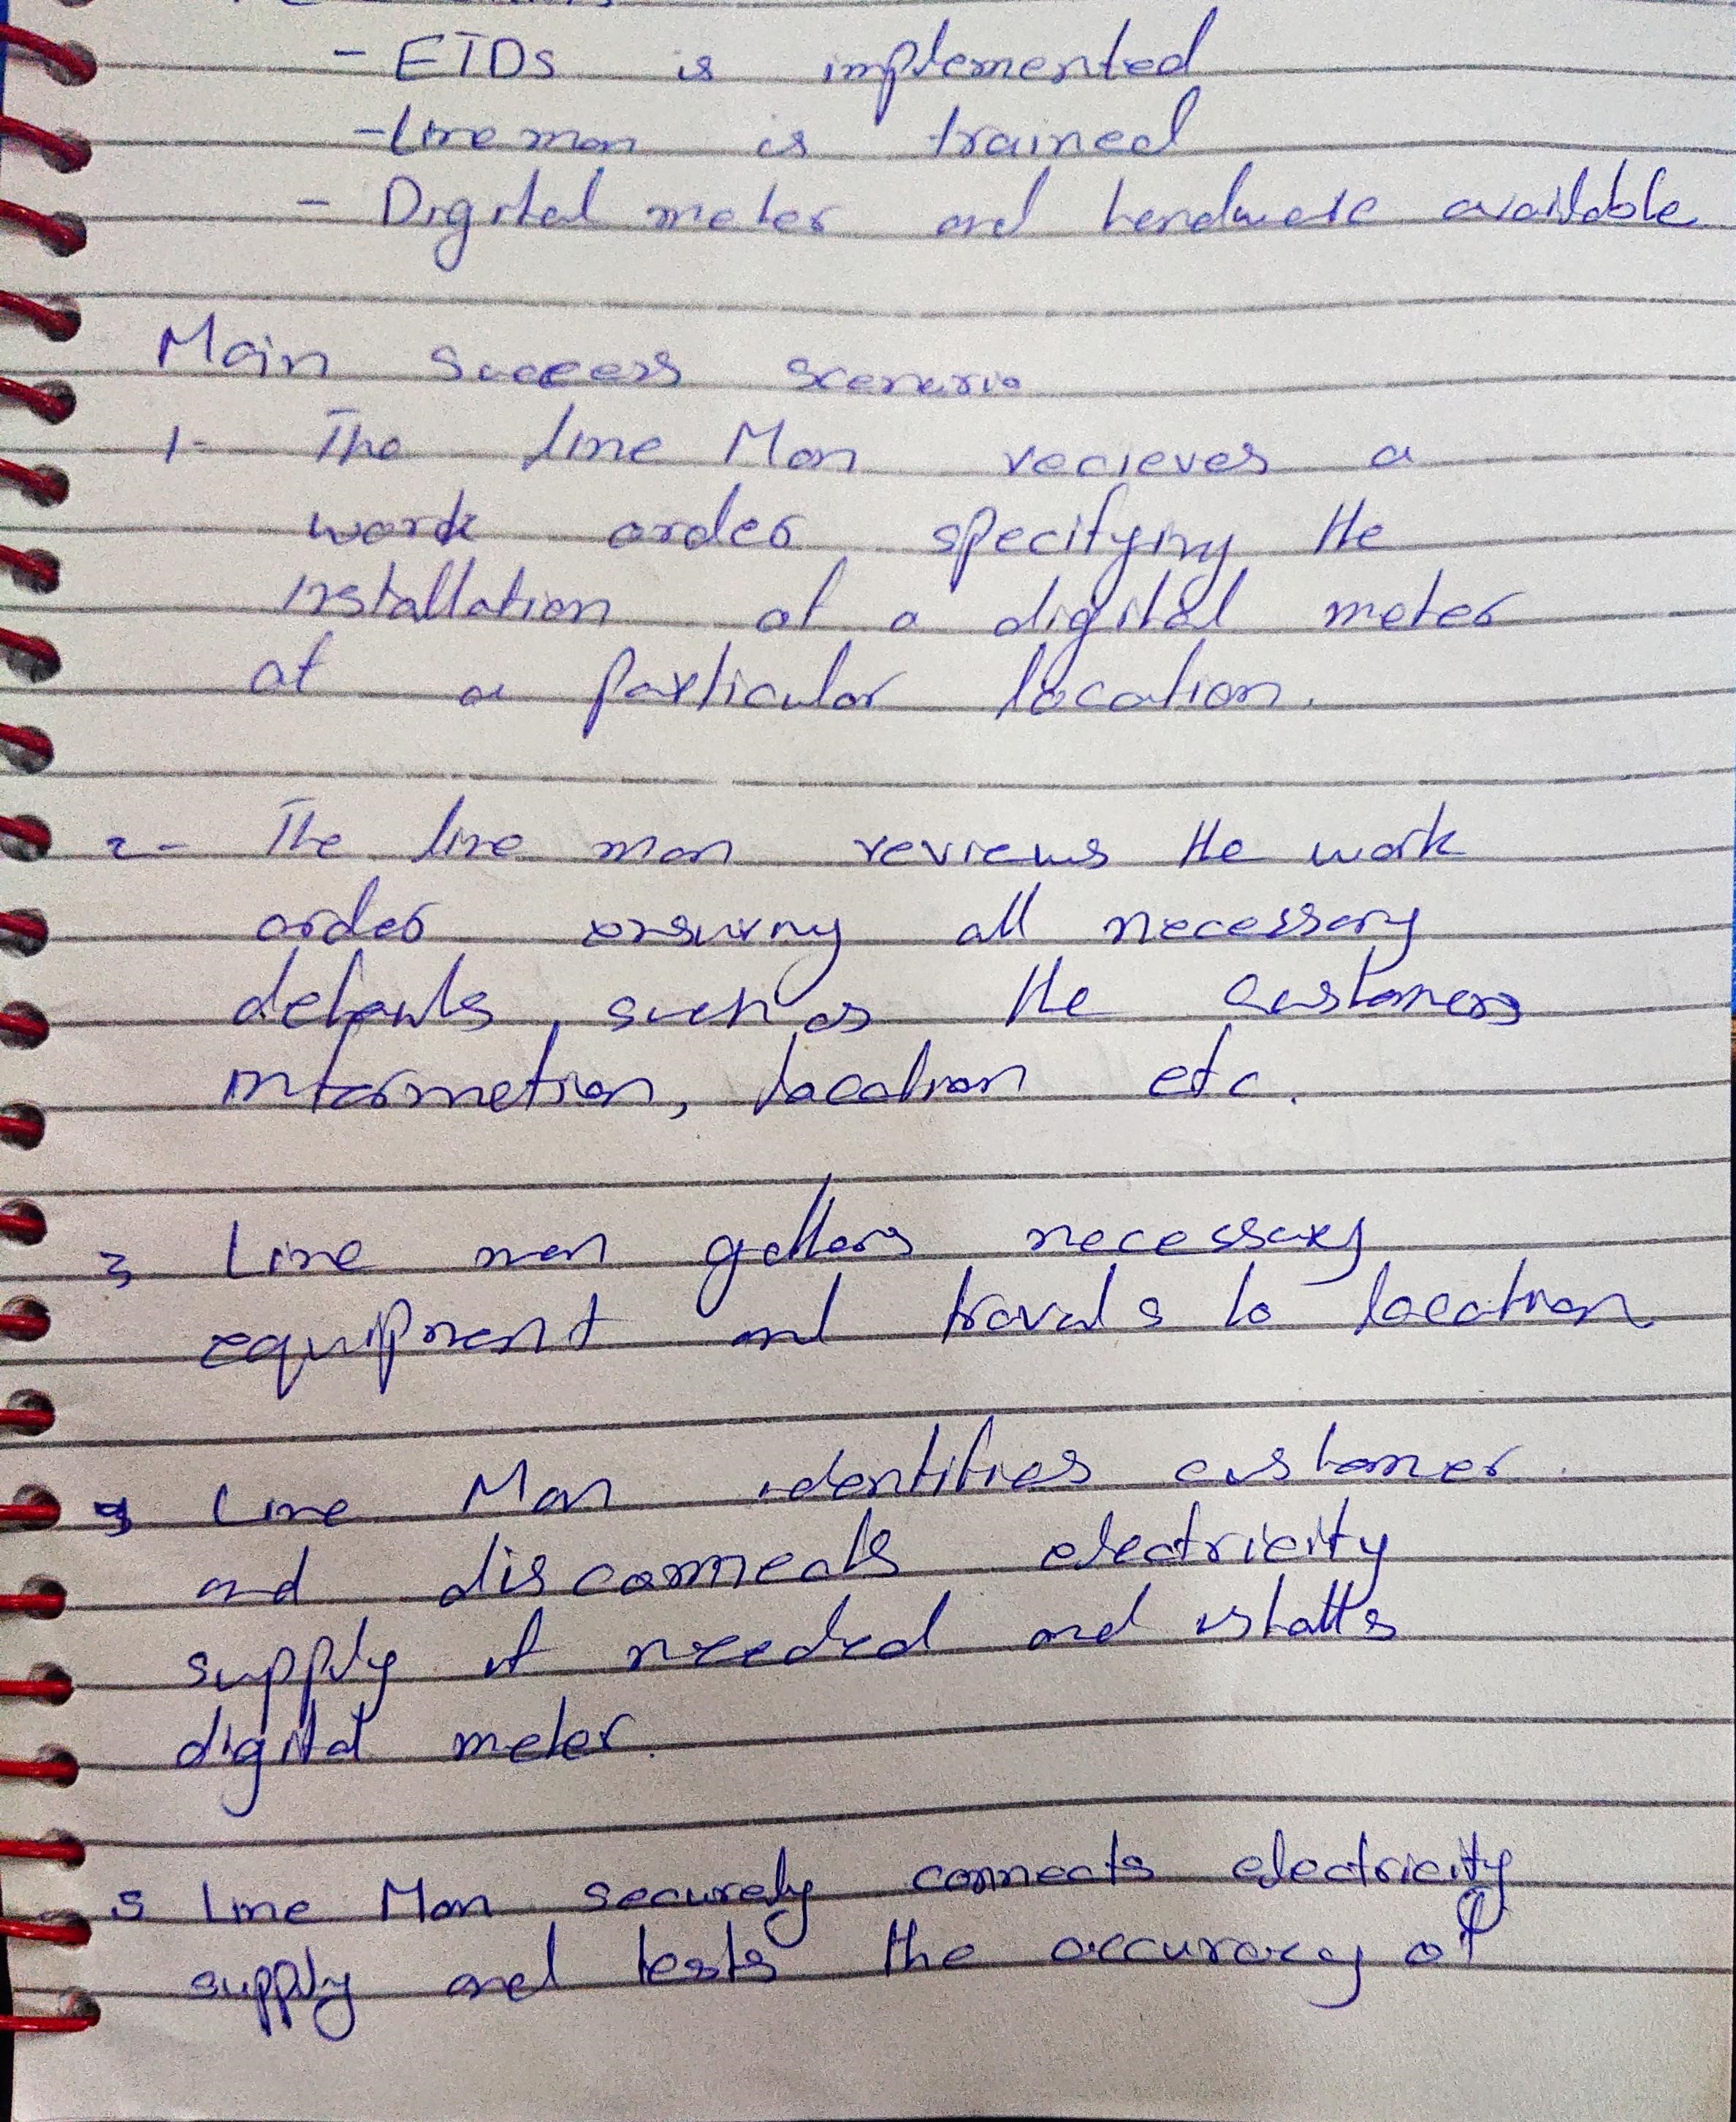 - ETDs is implemented
- Line man is trained
- Digital meter and hardware available
Main success scenario
1- The line Man recieves a
work order specifying the
installation of a digital meter
at a particular location.
2- The line man reviews the work
order ensuring all necessary
details, such as the customers
information, location etc.
3 Line man gathers necessary
equipment and travels to location
4 Line Man identifies customer
and disconnects electricity
supply if needed and istalls
digital meter.
5 Line Man securely connects electricity
supply and tests the accuracy of